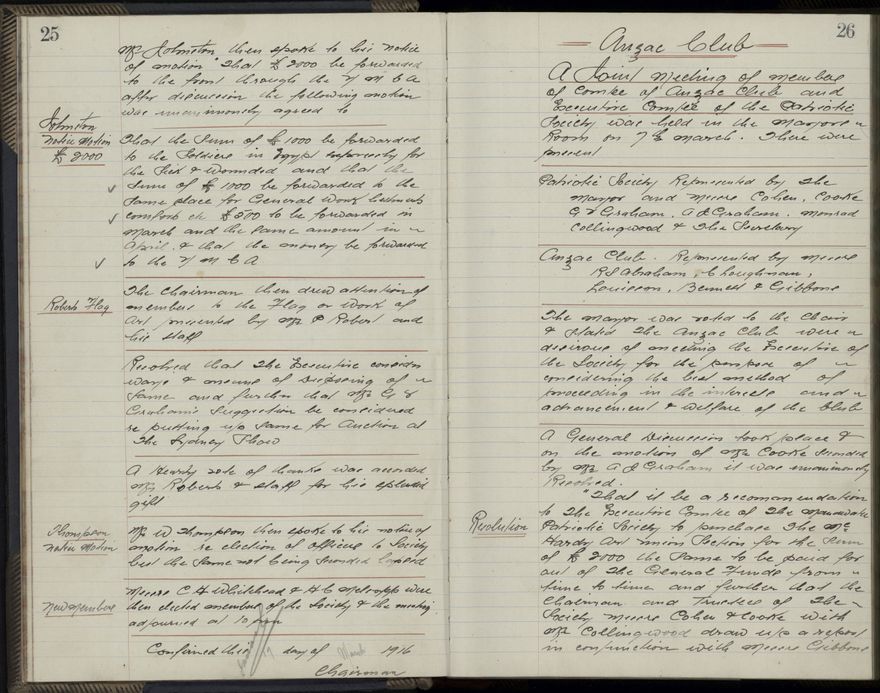 25
Mr Johnston then spoke to his notice
of motion "That £2000 be forwarded
to the front through the Y M C A
after discussion the following motion
was unanimously agreed to
Johnston
Notice Motion
£2000
That the Sum of £1000 be forwarded
to the Soldiers in Egypt expressly for
the Sick & Wounded and that the
Sum of £1000 be forwarded to the
Same place for General Work
comforts etc £500 to be forwarded in
March and the same amount in
April. & that the money be forwarded
to the Y M C A
Roberts Flag
The Chairman then drew attention of
members to the Flag or Work of
Art presented by Mr P Robert and
his staff
Resolved that The Executive consider
ways & means of Disposing of
Same and further that Mr G &
Graham's Suggestion be considered
re putting up same for Auction at
The Sydney Show
A Hearty vote of thanks was accorded
Mr Roberts & staff for his splendid
gift
Thompson
Notice Motion
Mr W Thompson then spoke to his notice of
motion re election of officers to Society
but the same not being seconded lapsed
New Members
Messrs C H Whitehead & H C
then elected members of the Society & the meeting
adjourned at 10 pm
Confirmed this day of March 1916
Chairman
26
Anzac Club
A Joint Meeting of members
of Comtee of Anzac Club and
Executive Comtee of the Patriotic
Society was held in the Mayors
Room on 7th March. There were
present
Patriotic Society Represented by The
Mayor and Messrs Cohen, Cooke
G & Graham. A J Graham. Monrad
Collingwood & The Secretary
Anzac Club. Represented by Messrs
R S Abraham,
Louisson, Bennett & Gibbons
The Mayor was voted to the Chair
& stated The Anzac Club were
desirous of meeting the Executive of
the Society for the purpose of
considering the best method of
proceeding in the interests and
advancement & welfare of the Club
A General Discussion took place &
on the motion of Mr Cooke seconded
by Mr A J Graham it was unanimously
Resolved.
Resolution
"That it be a recommendation
to The Executive Comtee of The Manawatu
Patriotic Society to purchase The Mc
Hardy Section for the Sum
of £2100 the Same to be paid for
out of The General Funds from
time to time and further that the
Chairman and Trustees of The
Society Messrs Cohen & Cooke with
Mr Collingwood draw up a report
in conjunction with Messrs Gibbons